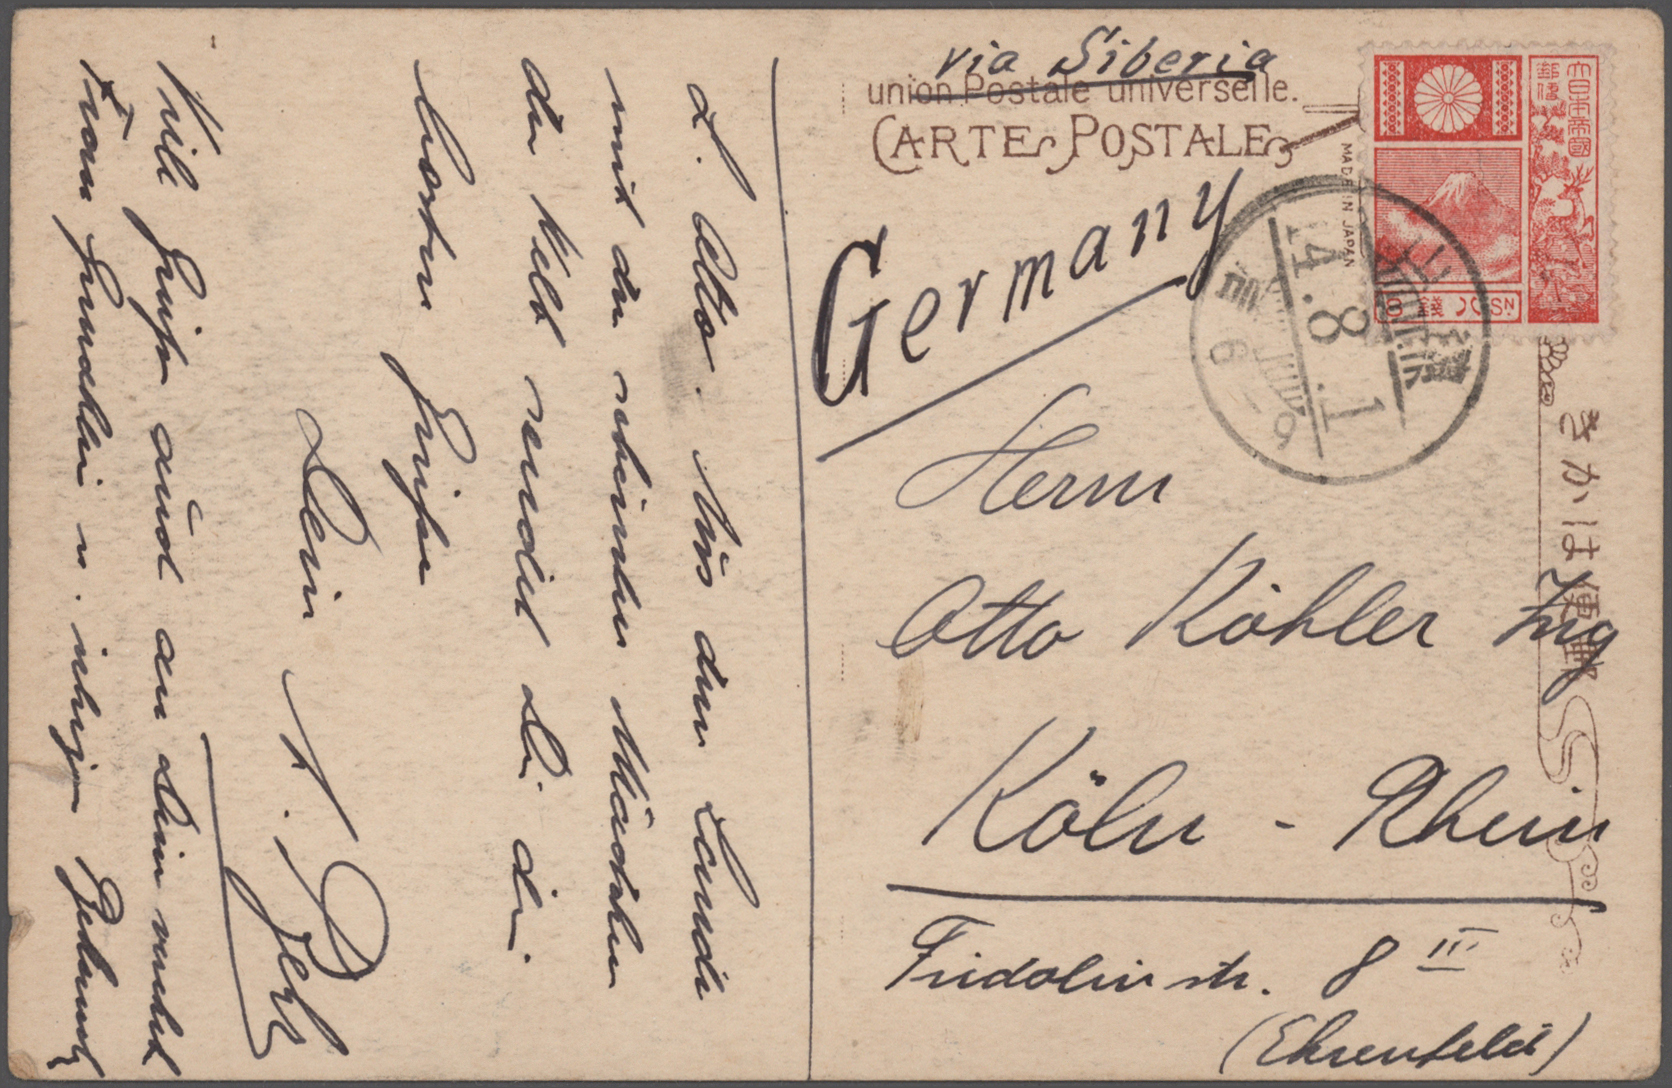 via Siberia
union Postale universelle.
CARTE POSTALE
MADE IN JAPAN
大日本帝國
郵便
8 錢 SN.
14.8.1
Germany
きかは便郵
Herrn
Otto Köhler Ing
Köln - Rhein
Fridolinstr. 8 III
(Ehrenfeld)
L. Otto. Aus dem Lande
mit den schönsten Mädchen
der Welt sendet Dir die
besten Grüße
Dein
Viele Grüße auch an Deine